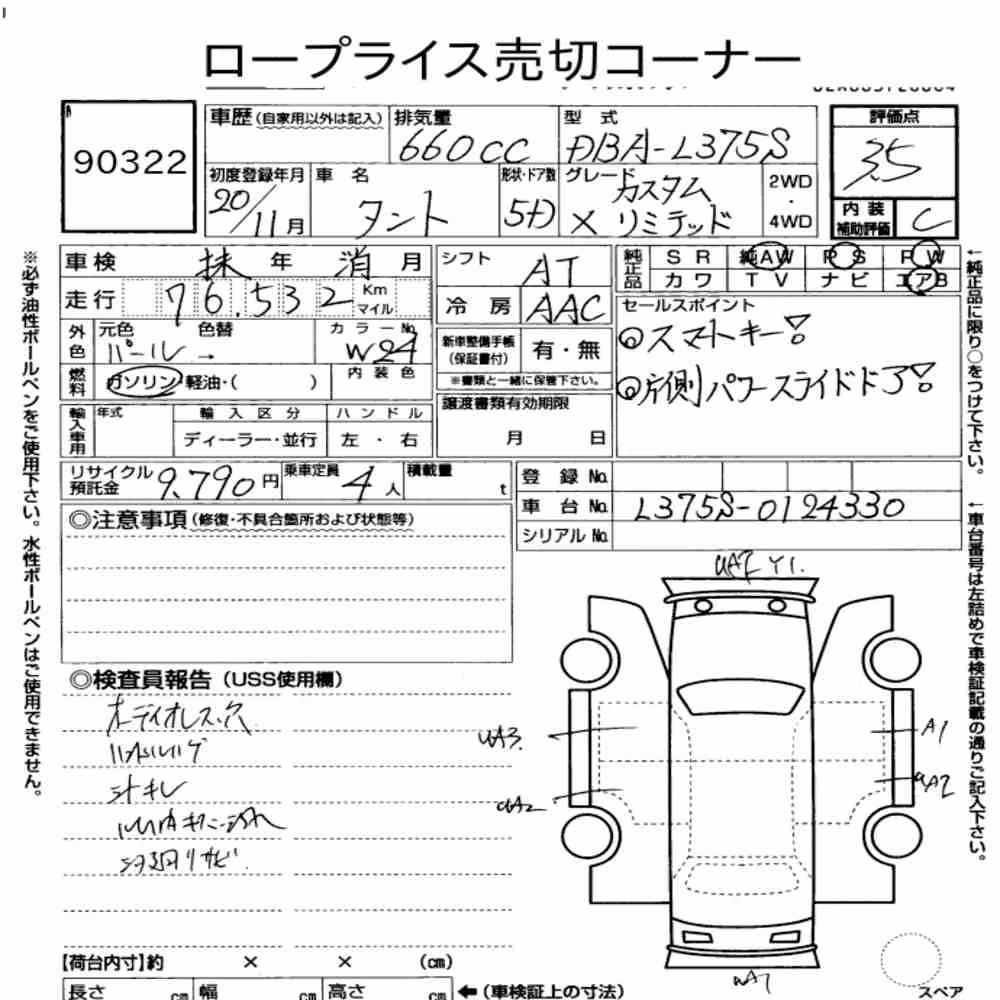 ロープライス売切コーナー
A
90322
車歴(自家用以外は記入)
排気量
660cc
型式
DBA-L375S
評価点
3.5
初度登録年月
20/11月
車名
タント
形状・ドア数
5D
グレード
カスタム
X リミテッド
2WD
・
4WD
内装
補助評価
C
車検 抹年 消月
走行 76.532 Km
マイル
外色
元色
パール
色替
→
カラーNo.
W24
燃料
ガソリン・軽油・( )
内装色
輸入車用
年式
輸入区分
ディーラー・並行
ハンドル
左・右
シフト
AT
冷房
AAC
新車整備手帳
(保証書付)
有・無
※書類と一緒に保管下さい。
譲渡書類有効期限
月 日
純正品
SR
純AW
PS
PW
カワ
TV
ナビ
エアB
セールスポイント
◎スマートキー!
◎片側パワースライドドア!
リサイクル
預託金
9.790円
乗車定員
4人
積載量
t
登録No.
車台No.
L375S-0124330
シリアルNo.
◎注意事項(修復・不具合箇所および状態等)
◎検査員報告(USS使用欄)
オーディオレス・穴
シートキレ
UA3
A1
【荷台内寸】約 × × (cm)
長さ cm
幅 cm
高さ cm
←(車検証上の寸法)
スペア
※必ず油性ボールペンをご使用下さい。水性ボールペンはご使用できません。
←純正品に限り○をつけて下さい。
←車台番号は左詰めで車検証記載の通りご記入下さい。